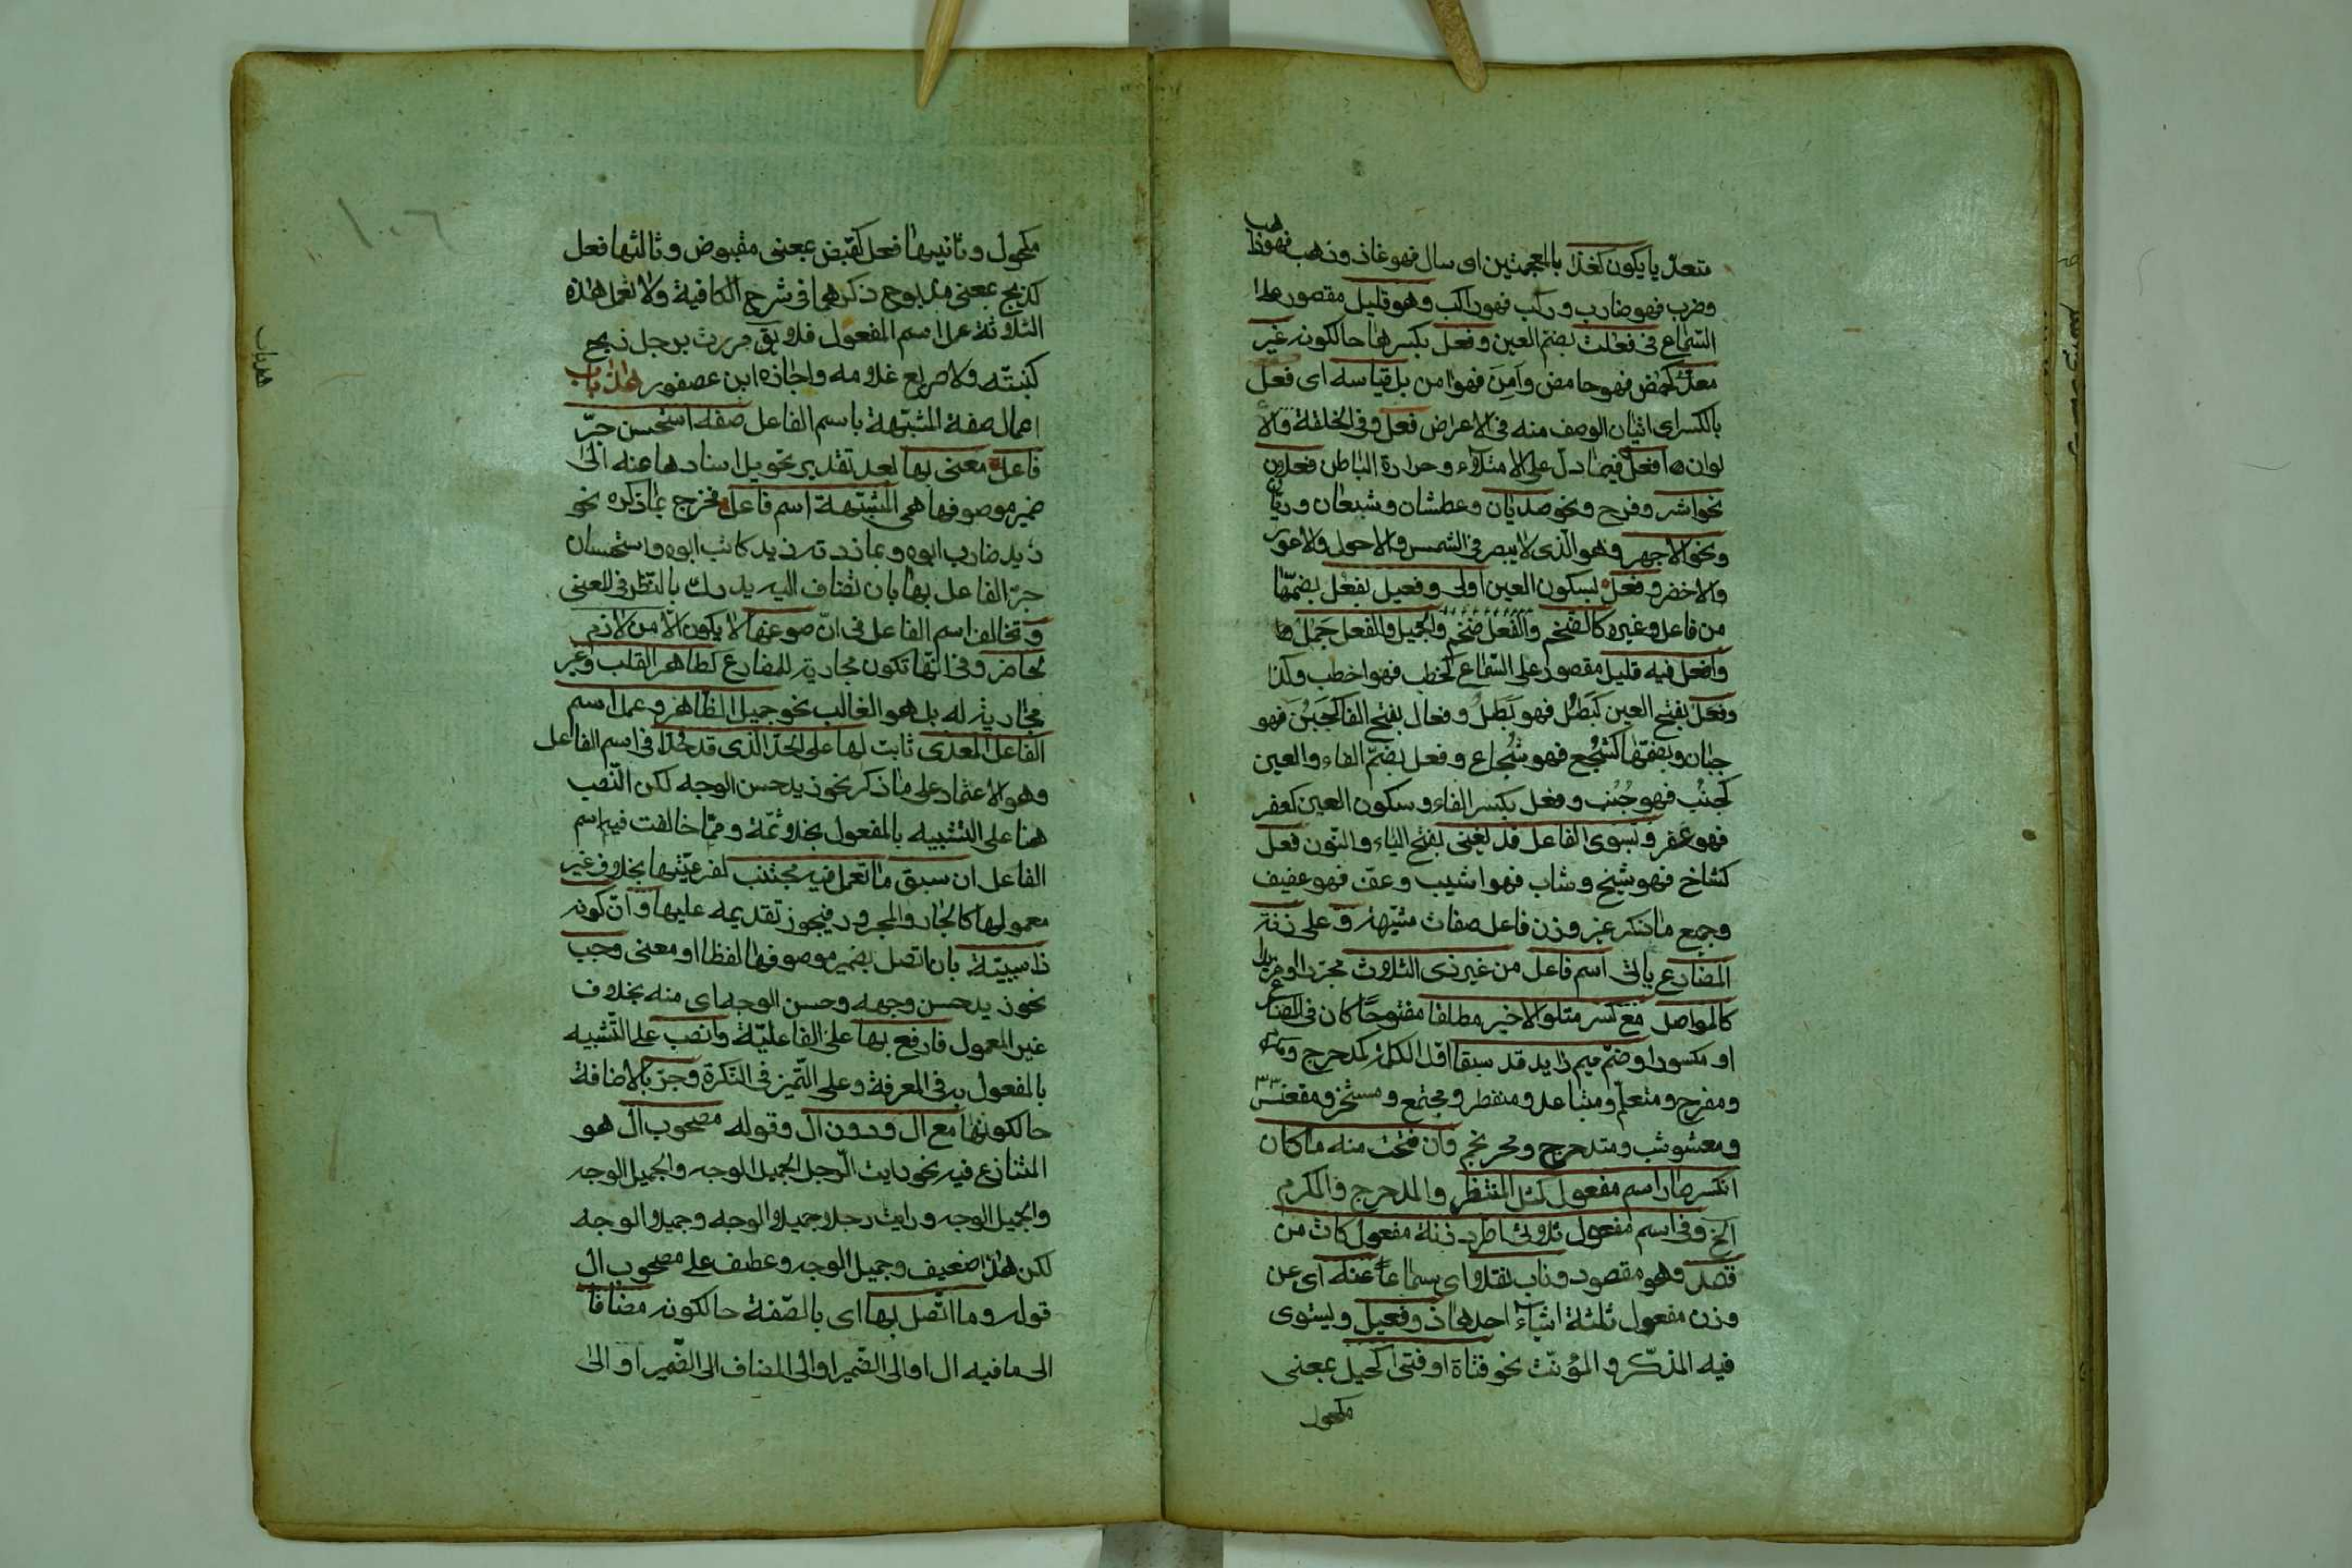 متعدّيا يكون كغذا بالمعجمتين اى سال فهو غاذ وذهب فهو ذاهب
وضرب فهو ضارب وركب فهو راكب وهو قليل مقصور على
السّماع فى فعلت بضمّ العين وفعل بكسرها حالكونه غير
معدّى كحمض فهو حامض وأمِنَ فهو امن بل قياسه اى فعل
بالكسر اى اتيان الوصف منه فى الاعراض فعل وفى الخلقة والا
لوان افعل فيما دلّ على الامتلاء وحرارة الباطن فعلان
نحو اشر وفرح ونحو صديان وعطشان وشبعان وريّان
ونحو الاجهر وهو الّذى لا يبصر فى الشمس والاحول والاعور
والاخضر وفعل بسكون العين اولى وفعيل بفعُل بضمّها
من فاعل وغيره كالضّخم والفعل ضَخُم والجميل والفعل جَمُل
وافعل فيه قليل مقصور على السّماع كخطب فهو اخطب وكذا
وفعل بفتح العين كبَطُل فهو بَطَل وفعال بفتح الفا كجَبُن فهو
جبان وبضمّها كشجُع فهو شُجاع وفعل بضمّ الفاء والعين
كجنُب فهو جُنُب وفعل بكسر الفاء وسكون العين كعفر
فهو عفر وبسوى الفاعل قد يغنى بفتح الياء والنّون فعل
كشاخ فهو شيخ وشاب فهو اشيب وعفّ فهو عفيف
وجميع ما ذكر غير وزن فاعل صفات مشبّهة وعلى زنة
المضارع ياتى اسم فاعل من غير ذى الثلاث مجرّدا او مزيدا
كالمواصل مع كسر متلوّ الاخير مطلقا مفتوحًا كان فى المضارع
او مكسورا وضمّ ميم زايد قد سبقا اوّل الكلمة كمدحرج ومكرم
ومفرح ومتعلّم ومتباعد ومنتظر ومجتمع ومستخرج ومقعنسس
ومعشوشب ومتدحرج ومحرنجم وان فتحت منه ما كان
انكسر صار اسم مفعول كمثل المنتظر والمدحرج والمكرم
الخ وفى اسم مفعول ثلاثى اطرد زنة مفعول كات من
قصد وهو مقصود وناب نقلا اى سماعا عنه اى عن
وزن مفعول ثلثة اشياء احدها ذو فعيل ويستوى
فيه المذكّر والمؤنّث نحو فتاة او فتى كحيل بمعنى
مكحول
١٠٦
مكحول وثانيها فعل كقبض بمعنى مقبوض وثالثها فعل
كذبح بمعنى مذبوح ذكرها فى شرح الكافية ولا تعمل هذه
الثلاثة عمل اسم المفعول فلا يق مررت برجل ذبح
كبشه ولا صريع غلامه واجازه ابن عصفور هذا باب
اعمال صفة المشبّهة باسم الفاعل صفة استحسن جرّ
فاعل معنى بها بعد تقدير تحويل اسنادها عنه الى
ضمير موصوفها هى المشبّهة اسم فاعل فخرج بما ذكره نحو
زيد ضارب ابوه وبما زدته زيد كاتب ابوه واستحسان
جرّ الفاعل بها بان تضاف اليه يدرك بالنّظر فى المعنى
وتخالف اسم الفاعل فى انّ صوغها لا يكون الّا من لازم
لحاضر وفى انّها تكون مجارية للمضارع كطاهر القلب وغير
مجارية له بل هو الغالب نحو جميل الظاهر وعمل اسم
الفاعل المعدى ثابت لها على الحدّ الّذى قد حُدّا فى اسم الفاعل
وهو الاعتماد على ما ذكر نحو زيد حسن الوجه لكن النّصب
هنا على التشبيه بالمفعول بخلاف ثمّة وممّا خالفت فيه اسم
الفاعل ان سبق ما تعمل فيه مجتنب لفرعيّتها بخلاف غير
معمولها كالجار والمجرور فيجوز تقديمه عليها وانّ كونه
ذا سببيّة بان اتصل بضمير موصوفها لفظا او معنى وجب
نحو زيد حسن وجهه وحسن الوجه اى منه بخلاف
غير المعمول فارفع بها على الفاعليّة وانصب على التّشبيه
بالمفعول به فى المعرفة وعلى التّميز فى النّكرة وجرّ بالاضافة
حالكونها مع ال ودون ال وقوله مصحوب ال هو
المتنازع فيه نحو رايت الرّجل الجميل الوجه والجميل الوجه
والجميل الوجه ورايت رجلا جميلا الوجه وجميلا الوجه
لكن هذا ضعيف وجميل الوجه وعطف على مصحوب ال
قوله وما اتّصل بها اى بالصّفة حالكونه مضافا
الى ما فيه ال او الى الضّمير او الى المضاف الى الضّمير او الى